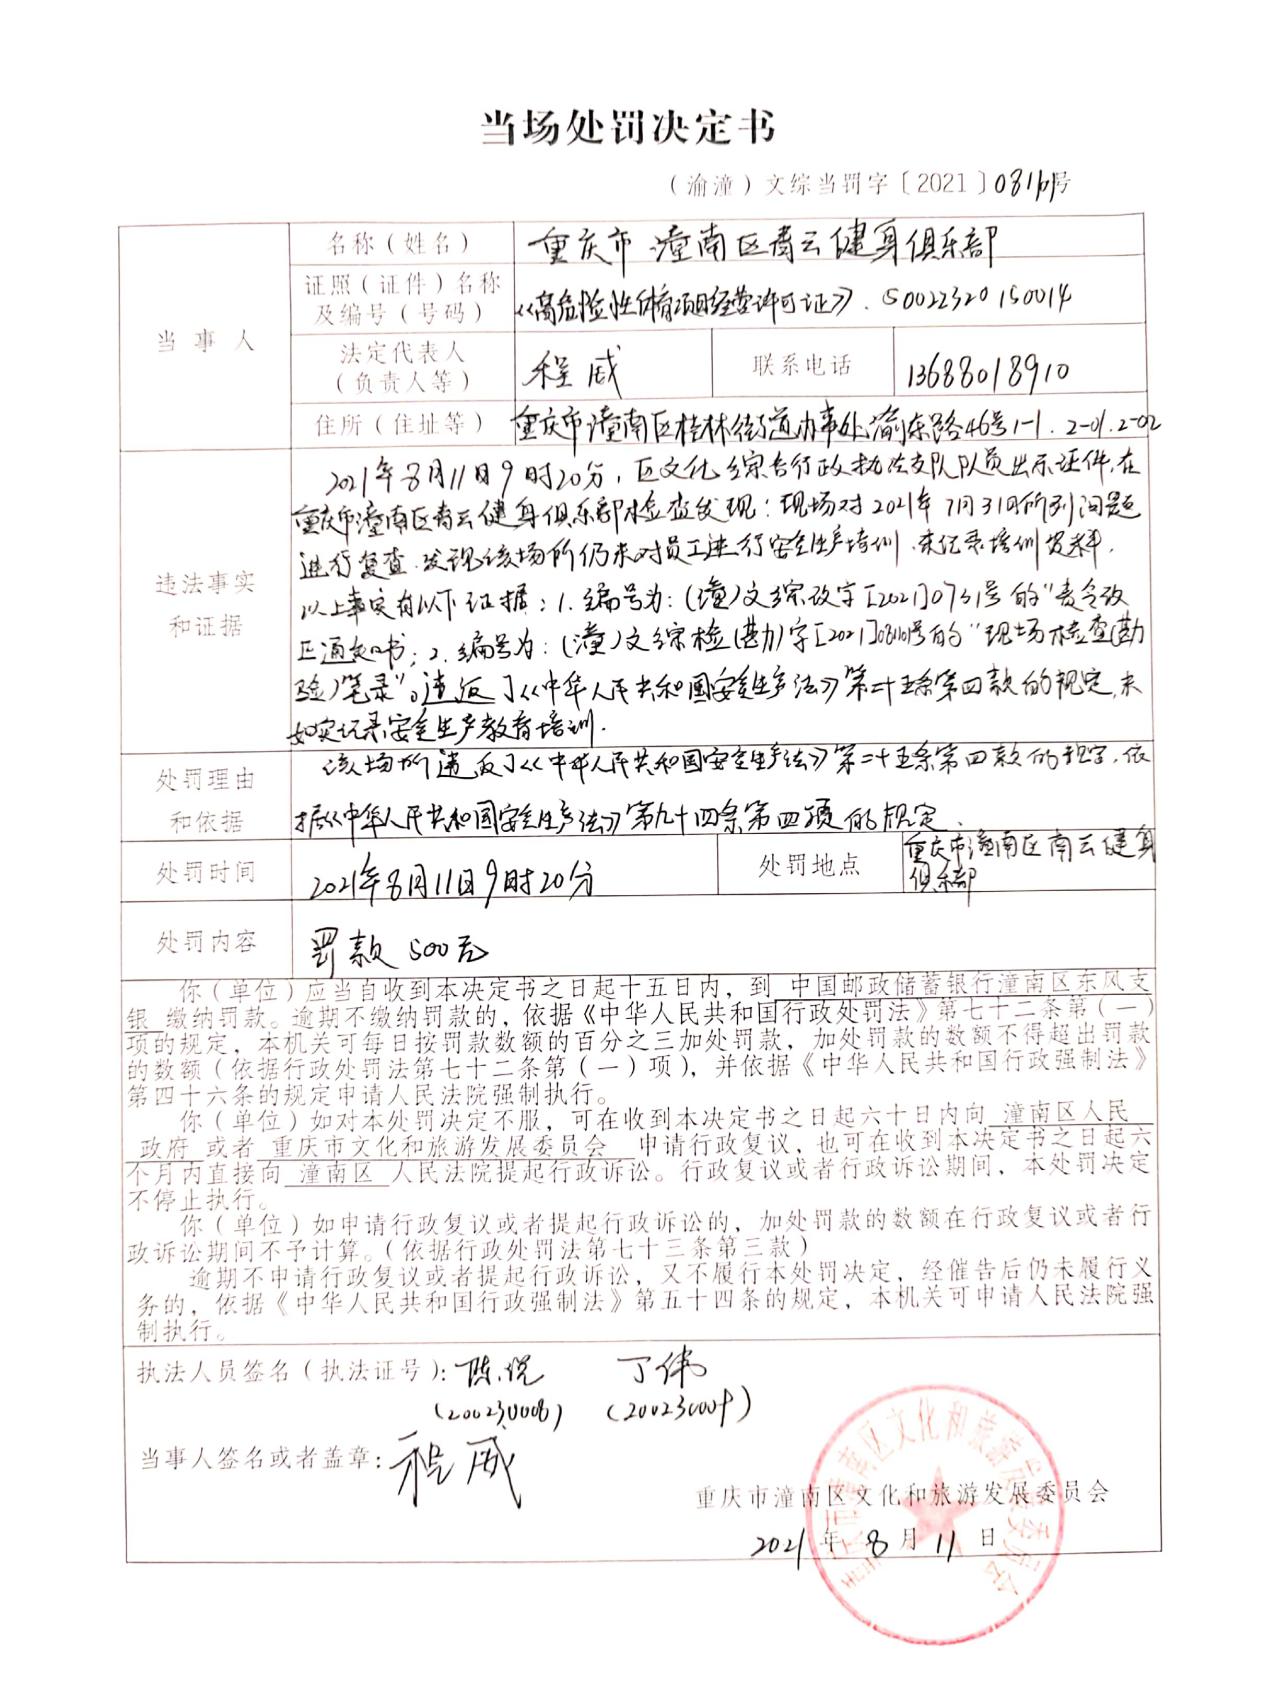 当场处罚决定书
（渝潼）文综当罚字〔2021〕号
当事人
名称（姓名）
重庆市潼南区青云健身俱乐部
证照（证件）名称
及编号（号码）
《高危险性体育项目经营许可证》. 50022320150014
法定代表人
（负责人等）
程威
联系电话
13688018910
住所（住址等）
重庆市潼南区桂林街道办事处渝东路46号1-1. 2-01. 2-02
违法事实
和证据
2021年8月11日9时20分，区文化综合行政执法支队队员出示证件，在
重庆市潼南区青云健身俱乐部检查发现：现场对2021年7月31日所列问题
进行复查，发现该场所仍未对员工进行安全生产培训，未记录培训资料.
以上事实有以下证据：1.编号为：(潼)文综改字[2021]0731号的“责令改
正通知书；2.编号为：(潼)文综检(勘)字[2021]号的“现场检查(勘
验)笔录”。违反了《中华人民共和国安全生产法》第二十五条第四款的规定，未
如实记录安全生产教育培训.
处罚理由
和依据
该场所违反了《中华人民共和国安全生产法》第二十五条第四款的规定，依
据《中华人民共和国安全生产法》第九十四条第四项的规定.
处罚时间
2021年8月11日9时20分
处罚地点
重庆市潼南区青云健身
俱乐部
处罚内容
罚款500元
你（单位）应当自收到本决定书之日起十五日内，到 中国邮政储蓄银行潼南区东风支
银 缴纳罚款。逾期不缴纳罚款的，依据《中华人民共和国行政处罚法》第七十二条第（一）
项的规定，本机关可每日按罚款数额的百分之三加处罚款，加处罚款的数额不得超出罚款
的数额（依据行政处罚法第七十二条第（一）项），并依据《中华人民共和国行政强制法》
第四十六条的规定申请人民法院强制执行。
你（单位）如对本处罚决定不服，可在收到本决定书之日起六十日内向 潼南区人民
政府 或者 重庆市文化和旅游发展委员会 申请行政复议，也可在收到本决定书之日起六
个月内直接向 潼南区 人民法院提起行政诉讼。行政复议或者行政诉讼期间，本处罚决定
不停止执行。
你（单位）如申请行政复议或者提起行政诉讼的，加处罚款的数额在行政复议或者行
政诉讼期间不予计算。（依据行政处罚法第七十三条第三款）
逾期不申请行政复议或者提起行政诉讼，又不履行本处罚决定，经催告后仍未履行义
务的，依据《中华人民共和国行政强制法》第五十四条的规定，本机关可申请人民法院强
制执行。
执法人员签名（执法证号）：陈悦 丁伟
(200230008) (200230009)
当事人签名或者盖章：程威
重庆市潼南区文化和旅游发展委员会
2021年8月11日
重庆市潼南区文化和旅游发展委员会